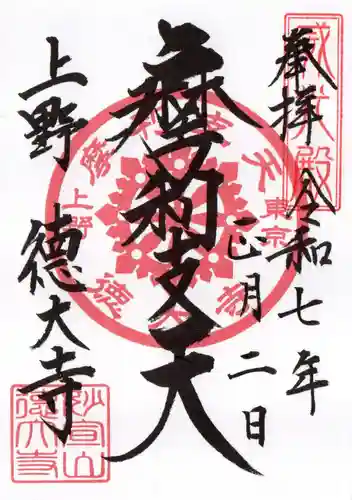 奉拝
令和七年
正月二日
摩利支天
上野
徳大寺
威光殿
摩利支天
東京
上野
徳大寺
妙宣山
徳大寺